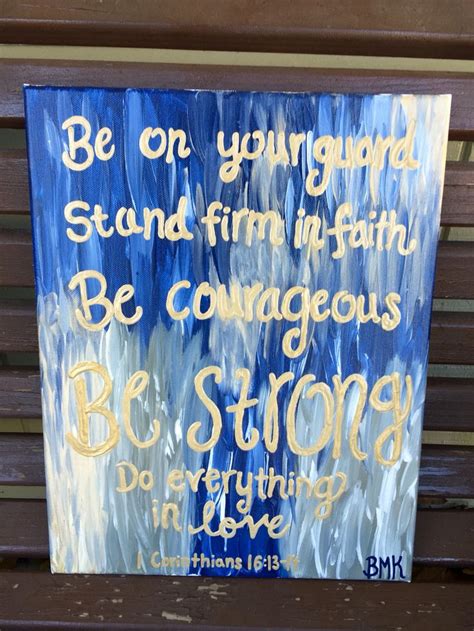 Be on your guard
Stand firm in faith
Be courageous
Be Strong
Do everything
in love
1 Corinthians 16:13-14
BMK